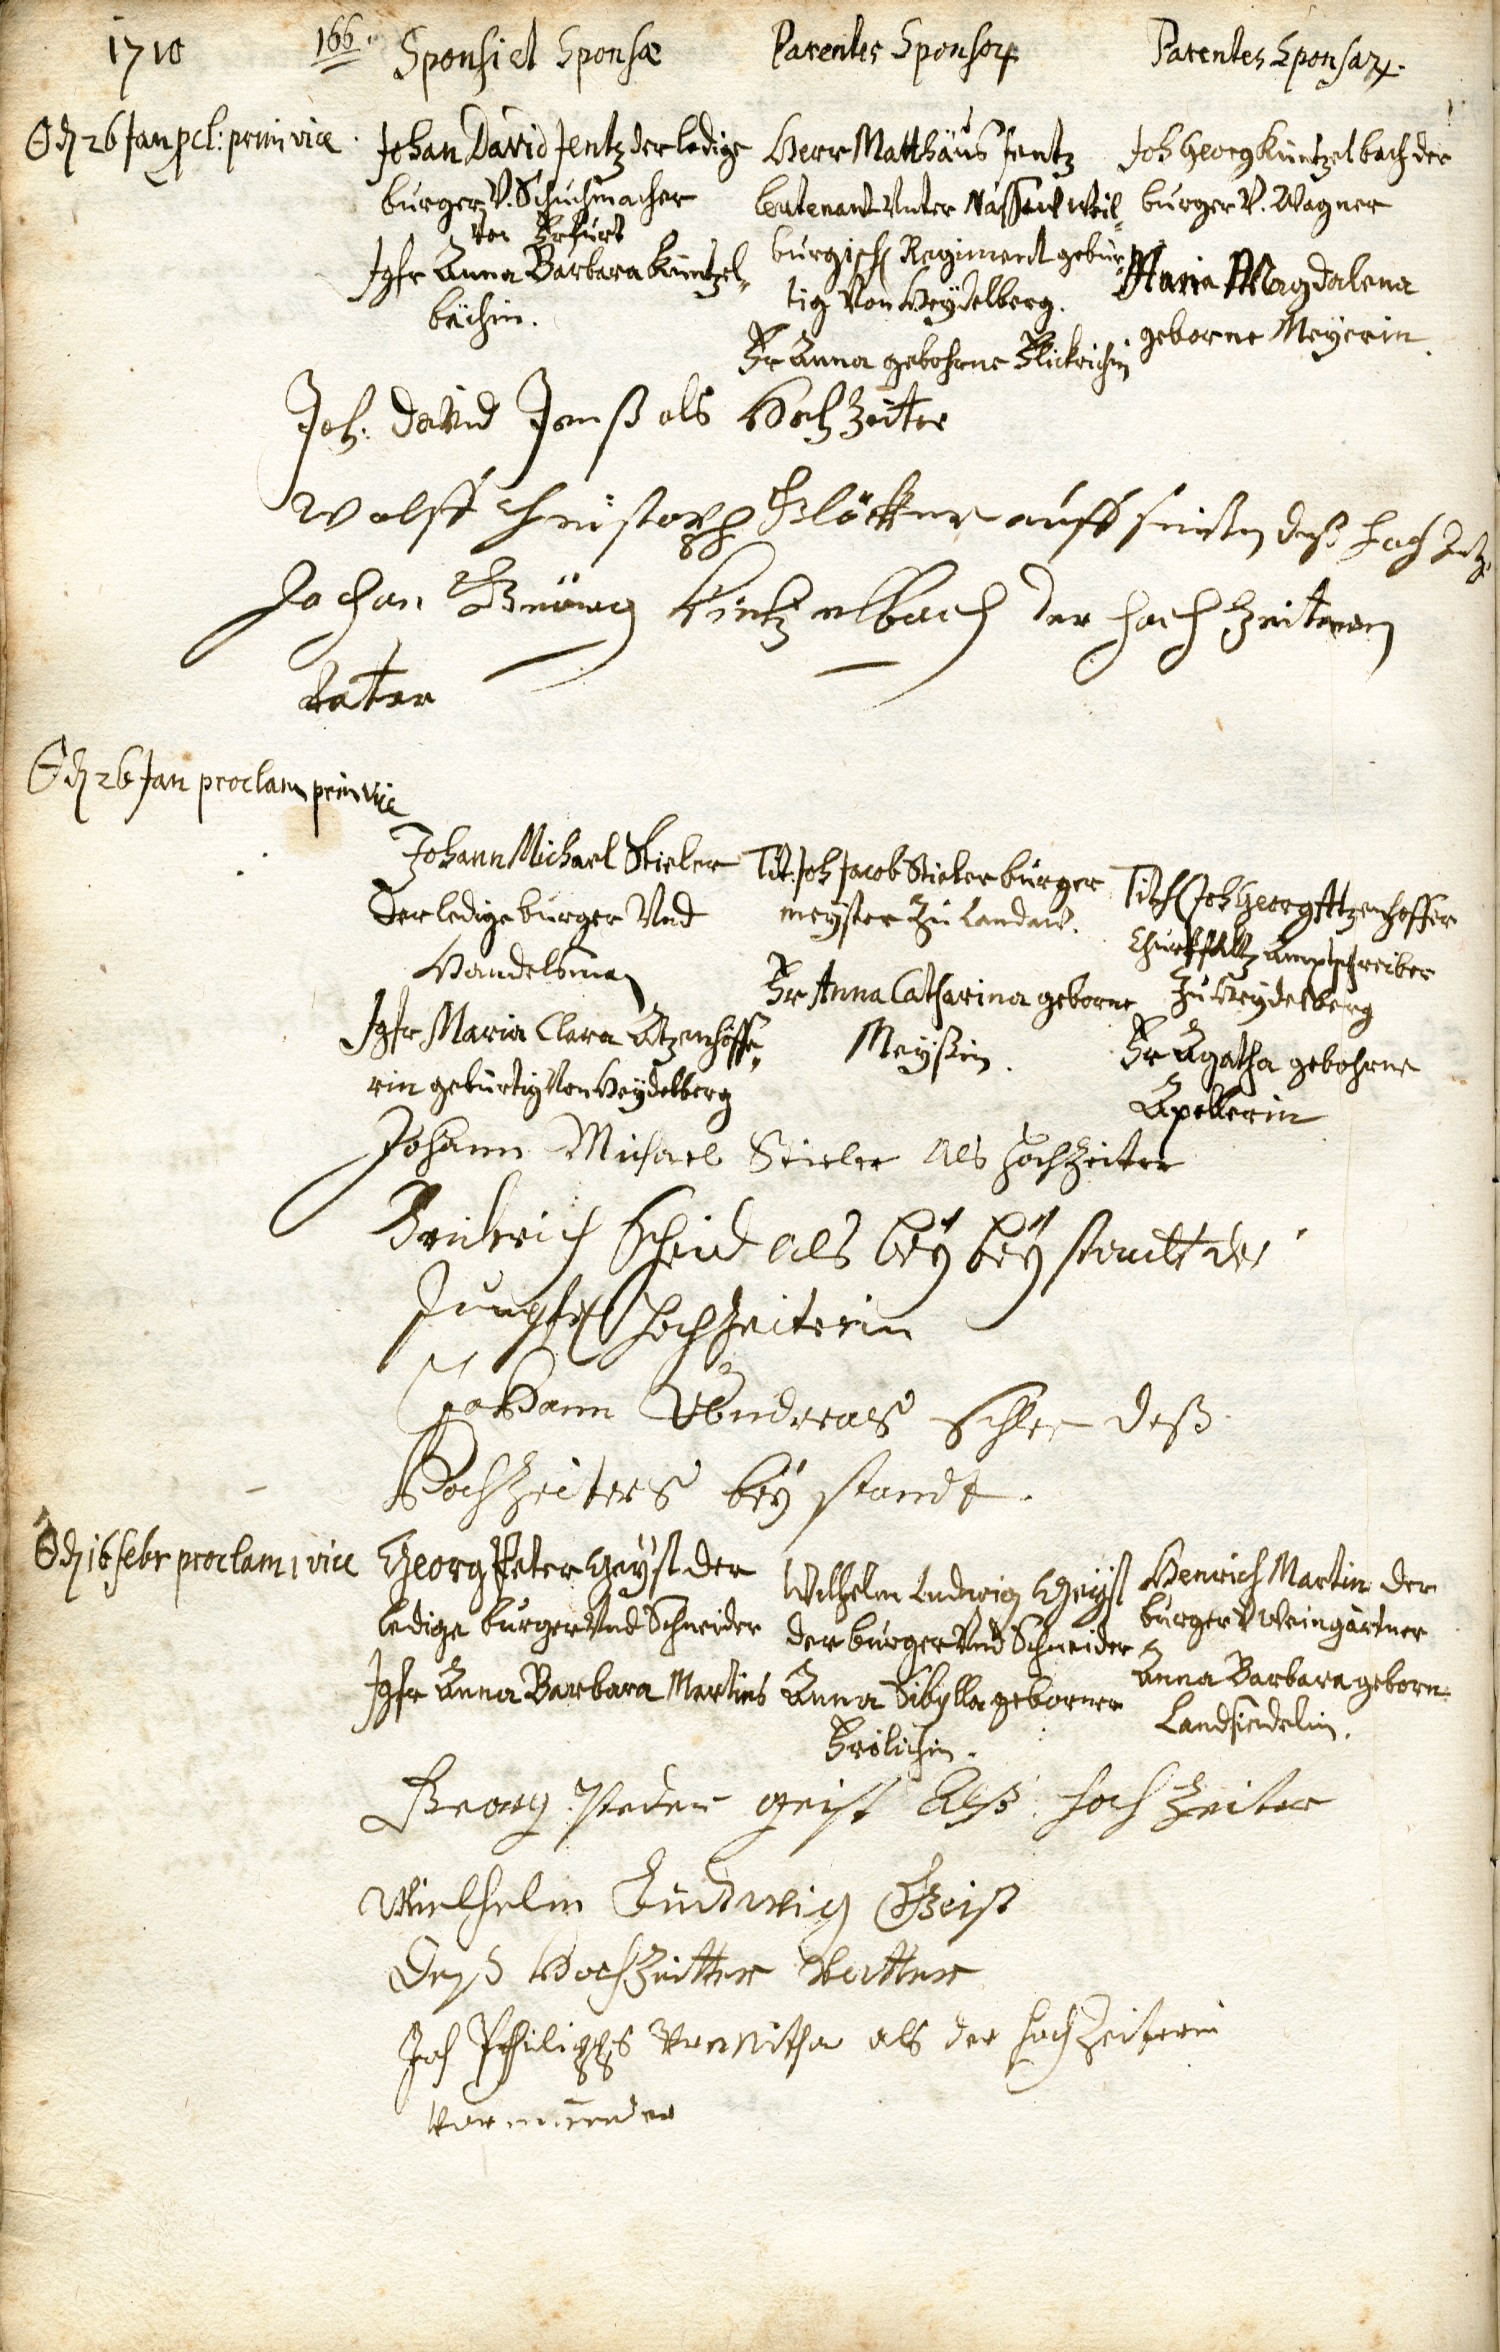 1710
166.
Sponsi et Sponsæ
Parentes Sponsor
Parentes Sponsar
26 Jan pcl: prim vice
Johan David Jentz der ledige
burger V. Schuhmacher
von Erfurt
Jgfr Anna Barbara Küntzel-
bächin.
Herr Matthäus Jentz
leutenant Unter Nassauweil-
burgisch Regiment gebür-
tig Von Heydelberg.
Fr Anna gebohrne
Joh Georg Küntzelbach der
burger V. Wagner
Maria Magdalena
geborne Meyerin
Joh: David Jentz als Hochzeiter
Wolff Christoph Glöckner auff seiten deß hochzeit
Johan Geörg Kintzelbach der hochzeiteren
Vater
26 Jan proclam prim vice
Johann Michael Stieler
der ledige burger Und
Handelsman
Jgfr Maria Clara Atzenhöffe-
rin gebürtig Von Heydelberg
Tit. Joh Jacob Stieler burger
meyster zu Landau.
Fr Anna Catharina geborne
Meyßin.
Tit H Joh Georg Atzenhoffer
Churpfaltz amptschreiber
zu Heydelberg
Fr Agatha gebohrne
Apellerin
Johann Michael Stieler als Hochzeiter
Fridrich Scheid als bey beystandt der
Jungfr Hochzeiterin
Johann Andreas deß
Hochzeiters beystandt.
16 febr proclam 1 vice
Georg Peter Geyst der
ledige burger Und Schneider
Jgfr Anna Barbara Martins
Wilhelm Ludwig Geyst
der burger Und Schneider
Anna Sibylla geborner
Frölichin.
Henrich Martin der
burger V Weingärtner
Anna Barbara geborn
Landsiedelin.
Georg Peder geist Alß hochzeiter
Wielhelm Ludwig Geist
Deß Hochzeitter Vatter
Joh Philipps als der hochzeiterin
Vormünder